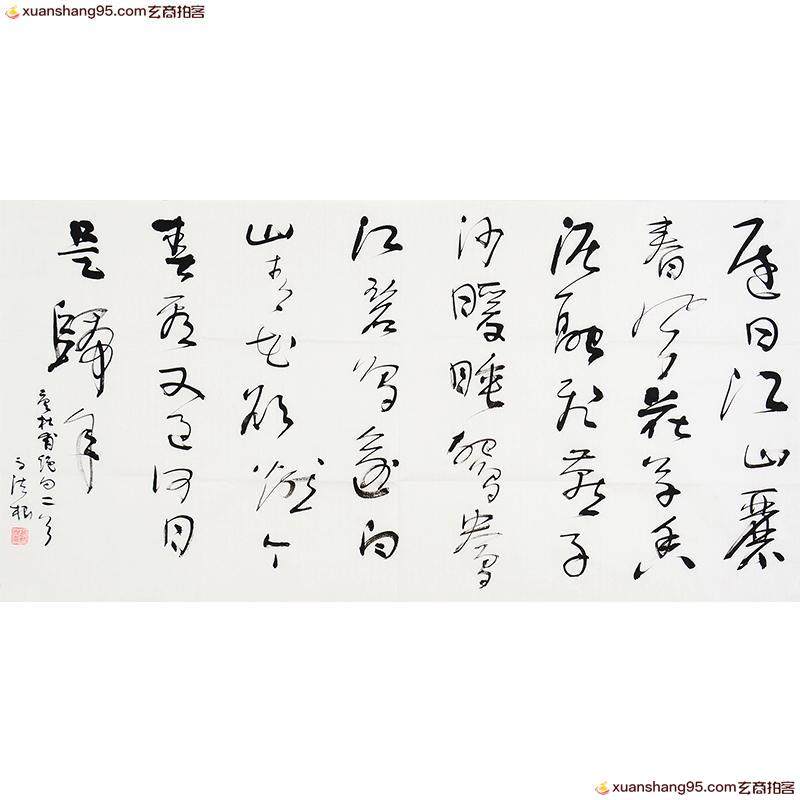 xuanshang95.com玄商拍客
xuanshang95.com玄商拍客
遲日江山麗
春風花草香
泥融飛燕子
沙暖睡鴛鴦
江碧鳥逾白
山青花欲燃今
春看又過何日
是歸年
杜甫絕句二首
xuanshang95.com玄商拍客